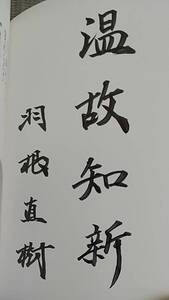 温故知新
羽根直樹